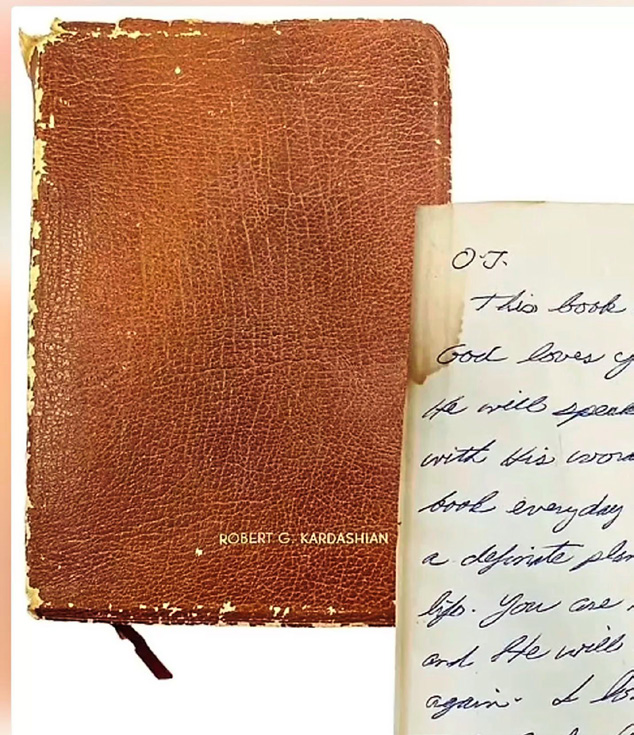 ROBERT G. KARDASHIAN
O.J.
This book
God loves
He will speak
with His word
book everyday
a definite plan
life. You are
and He will
again. I